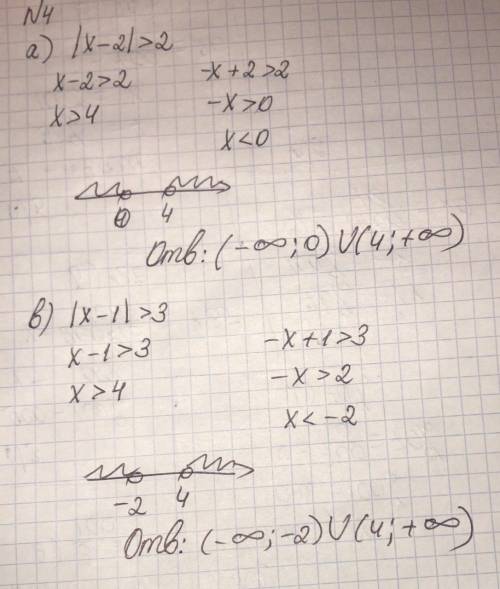 N4
а) |x-2|>2
x-2>2 -x+2>2
x>4 -x>0
x<0
0 4
Отв: (-∞; 0) U (4; +∞)
в) |x-1|>3
x-1>3 -x+1>3
x>4 -x>2
x<-2
-2 4
Отв: (-∞; -2) U (4; +∞)